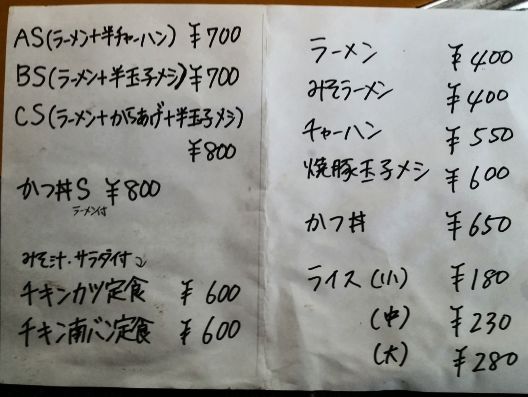 AS(ラーメン+半チャーハン) ¥700
BS(ラーメン+半玉子メシ) ¥700
CS(ラーメン+からあげ+半玉子メシ)
¥800
かつ丼S ¥800
ラーメン付
みそ汁・サラダ付
チキンカツ定食 ¥600
チキン南バン定食 ¥600
ラーメン ¥400
みそラーメン ¥400
チャーハン ¥550
焼豚玉子メシ ¥600
かつ丼 ¥650
ライス(小) ¥180
(中) ¥230
(大) ¥280